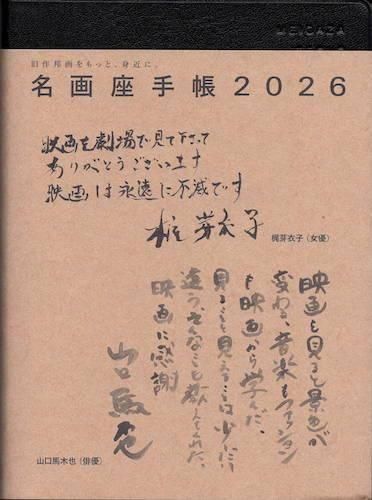 MEIGAZA
旧作邦画をもっと、身近に。
名画座手帳2026
映画を劇場で見て下さって
ありがとうございます
映画は永遠に不滅です
梶芽衣子
梶芽衣子（女優）
映画を見ると景色が
変わる、音楽もファッション
も映画から学んだ、
見ることと見えることは少しだけ
違う、そんなことを教えてくれた、
映画に感謝
山口馬木也
山口馬木也（俳優）